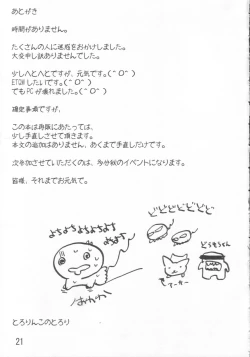 あとがき
時間がありません。
たくさんの人に迷惑をおかけしました。
大変申し訳ありませんでした。
少しへとへとですが、元気です。(^O^)
ETOMしたいです。(^O^)
でもPCが壊れました。(^O^)
確定事項ですが、
この本は再販にあたっては、
少し手直しさせて頂きます。
本文の追加はありません、あくまで手直しだけです。
次参加させていただくのは、多分秋のイベントになります。
皆様、それまでお元気で。
どどどどどどど
よちよちよちよちよち
とろりんこのとろり
21